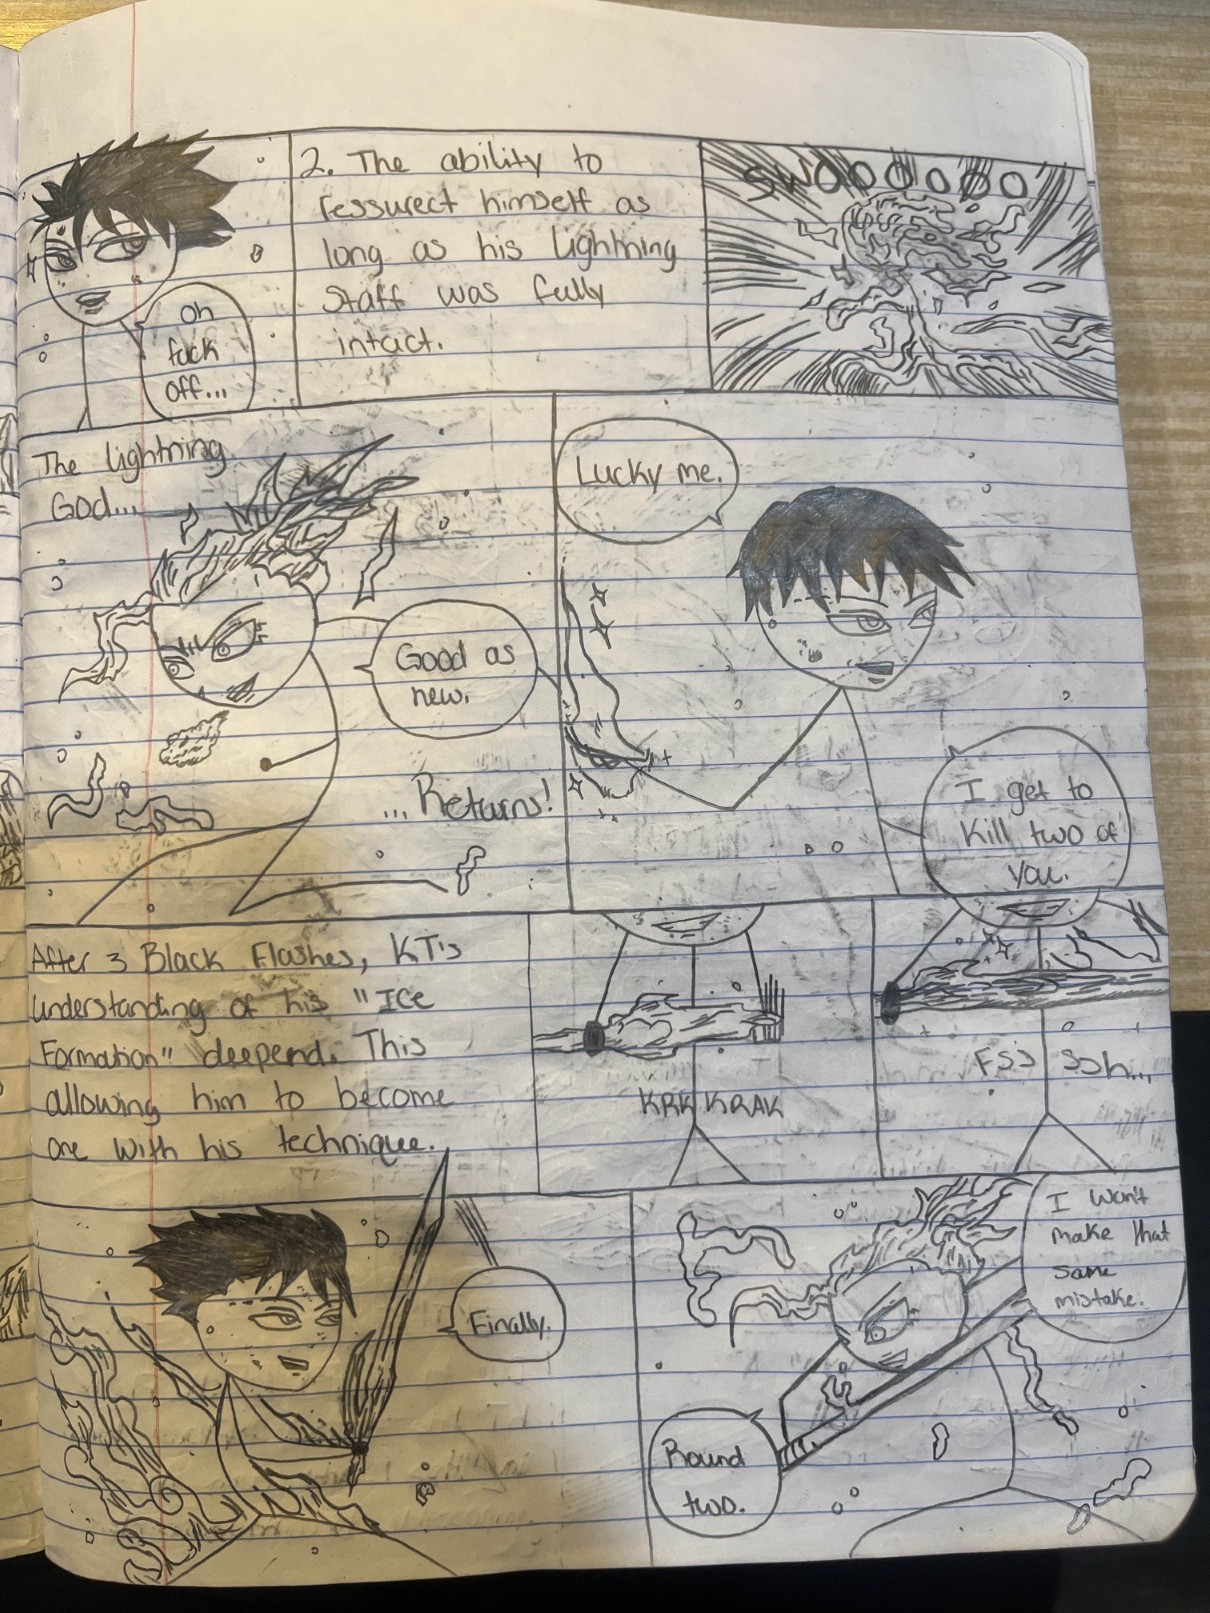 oh
fuck
off...
2. The ability to
ressurect himself as
long as his lightning
staff was fully
intact.
SWOOOOOOO
The lightning
God...
Good as
new.
...Returns!
Lucky me.
I get to
kill two of
you.
After 3 Black Flashes, KT's
understanding of his "ICE
Formation" deepend. This
allowing him to become
one with his technique.
KRK KRAK
FSS SSh...
Finally.
I won't
make that
same
mistake.
Round
two.